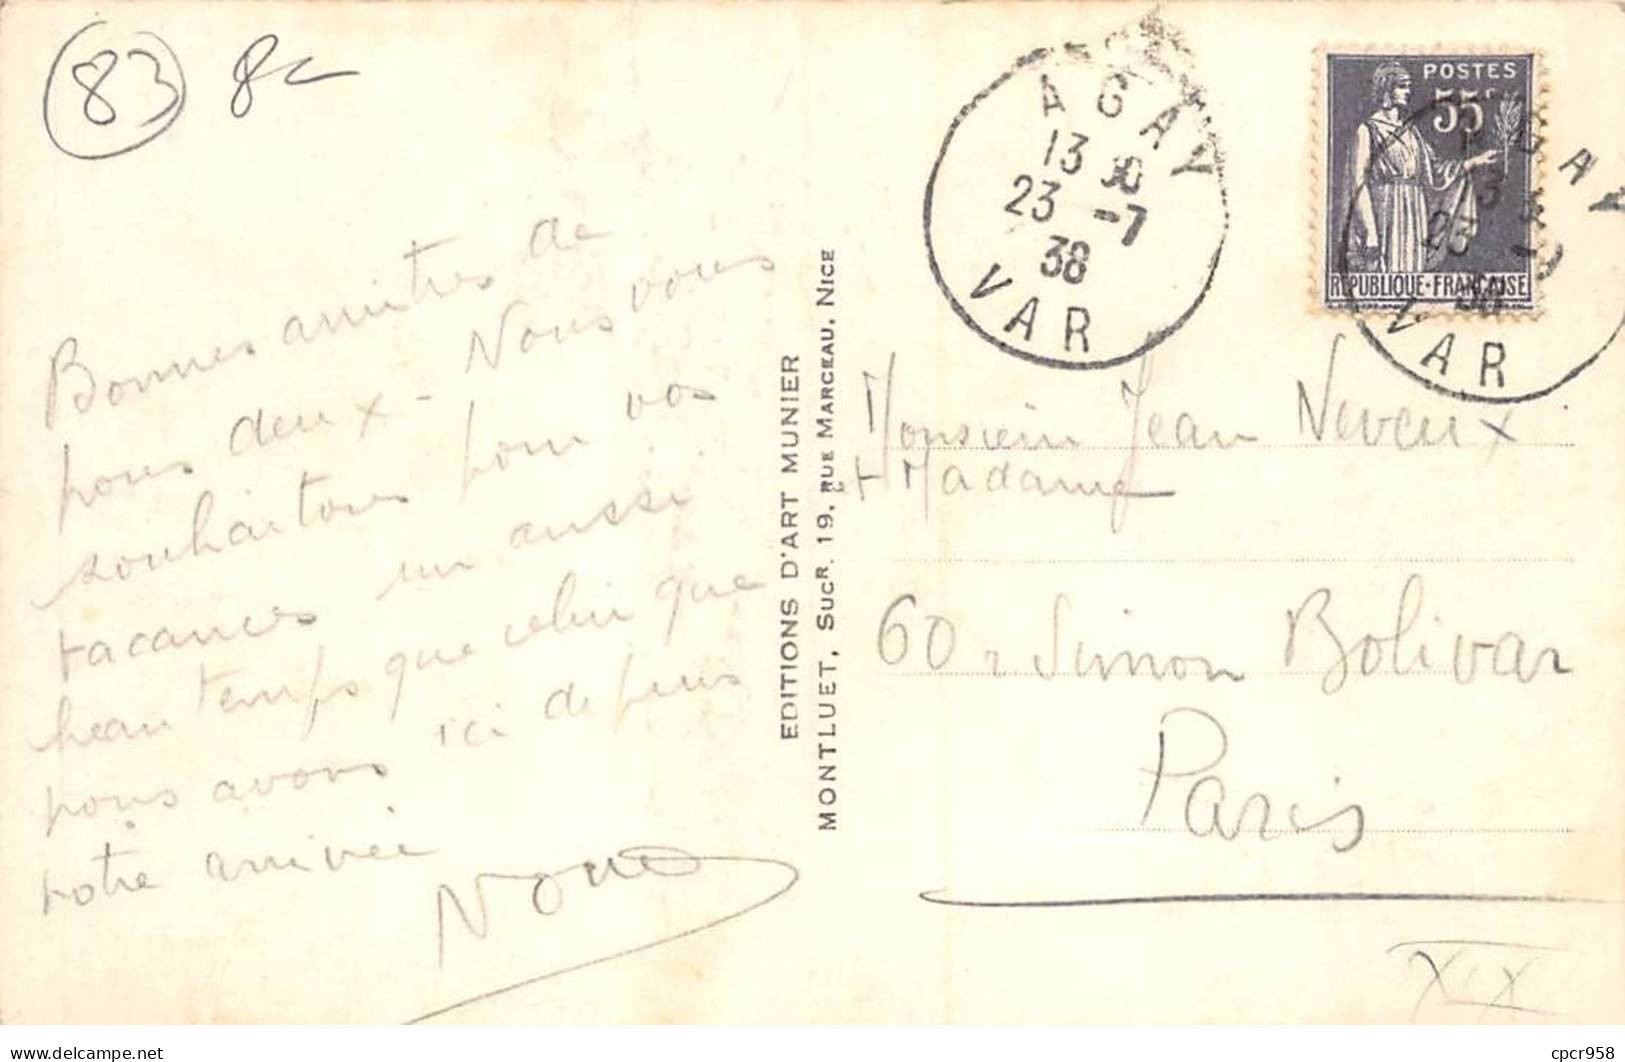 83 8c
Bonnes amitiés de
nous deux - Nous vous
souhaitons pour vos
vacances un aussi
beau temps que celui que
nous avons ici depuis
notre arrivée
EDITIONS D'ART MUNIER
MONTLUET, SUCR. 19, RUE MARCEAU, NICE
AGAY
13 30
23 -7
38
VAR
POSTES
55c
REPUBLIQUE-FRANÇAISE
AGAY
13 30
23 -7
38
VAR
Monsieur Jean Neveux
et Madame
60 r Simon Bolivar
Paris
XIX
www.delcampe.net
cpcr958